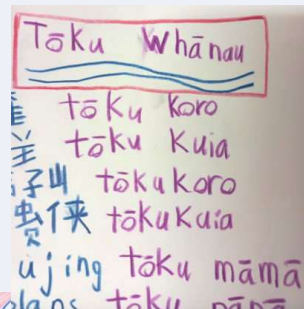 Tōku Whānau
tōku Koro
tōku Kuia
子山 tōku koro
贾侠 tōku Kuia
ujing tōku māmā
tōku pāpā